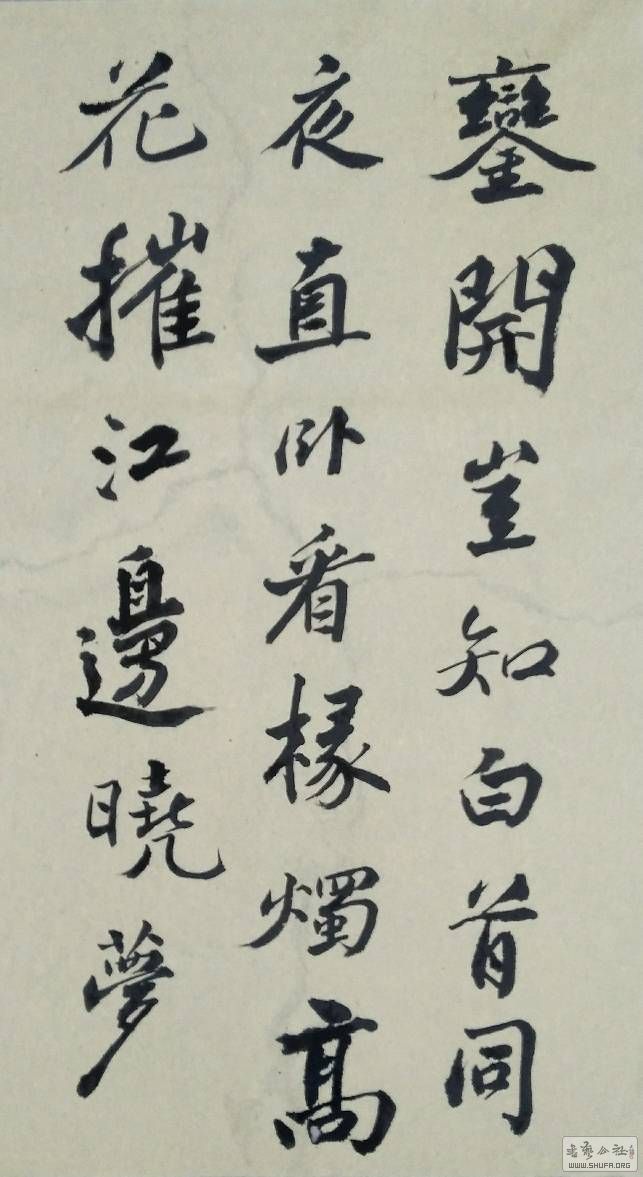 鑾開豈知白首同
夜直臥看椽燭高
花摧江邊曉夢
書藝公社
WWW.SHUFA.ORG